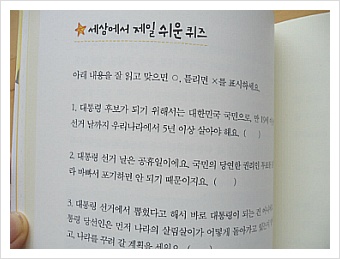 세상에서 제일 쉬운 퀴즈
아래 내용을 잘 읽고 맞으면 ○, 틀리면 ×를 표시하세요.
1. 대통령 후보가 되기 위해서는 대한민국 국민으로, 만
선거 날까지 우리나라에서 5년 이상 살아야 해요. ( )
2. 대통령 선거 날은 공휴일이에요. 국민의 당연한 권리인
라 바빠서 포기하면 안 되기 때문이지요. ( )
3. 대통령 선거에서 뽑혔다고 해서 바로 대통령이 되는 건
통령 당선인은 먼저 나라의 살림살이가 어떻게 돌아가고
고, 나라를 꾸려 갈 계획을 세워요.